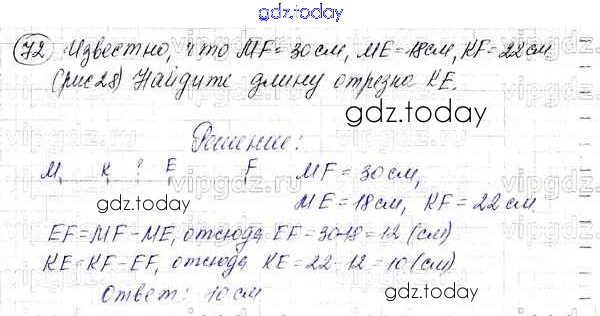 gdz.today
72 Известно, что MF=30см, ME=18см, KF=22см
(рис28) Найдите длину отрезка KE.
gdz.today
Решение:
M K ? E F MF=30см,
vipgdz.ru
gdz.today
ME=18см, KF=22см.
EF=MF-ME, отсюда EF=30-18=12 (см)
KE=KF-EF, отсюда KE=22-12=10 (см)
Ответ: 10см
gdz.today